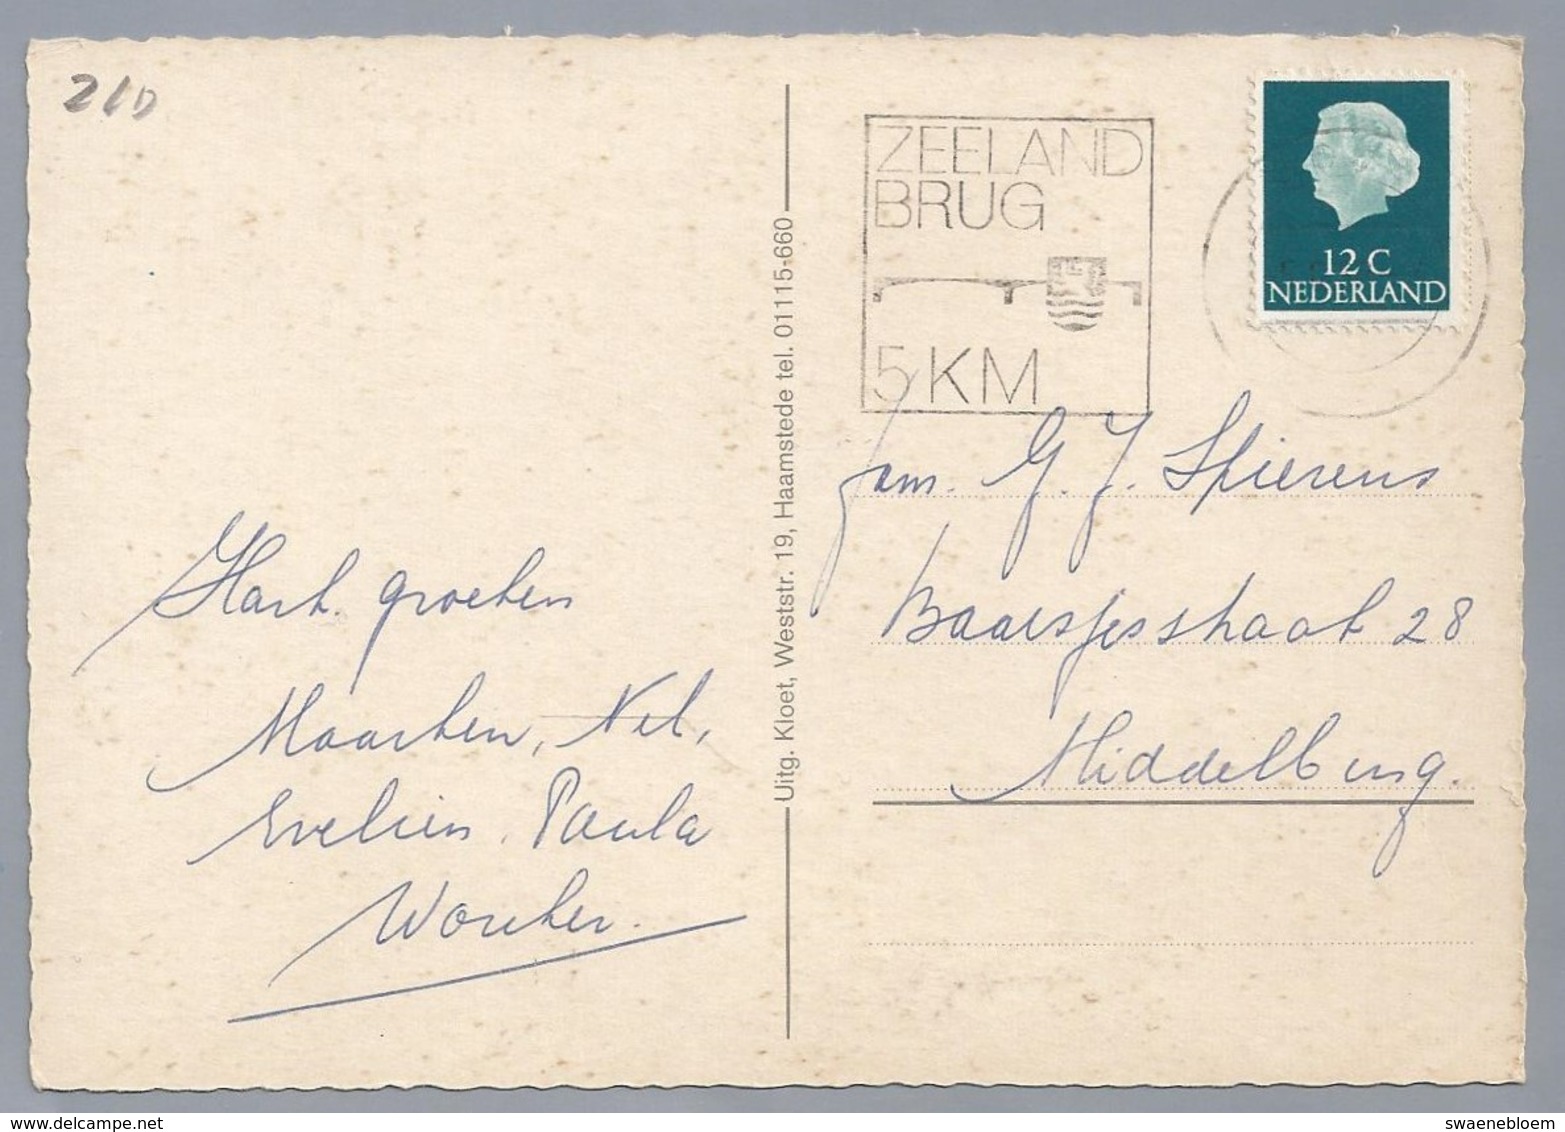 21D
ZEELAND
BRUG
5 KM
12 C
NEDERLAND
Uitg. Kloet, Weststr. 19, Haamstede tel. 01115-660
Fam. G. J. Spierens
Baarsjesstraat 28
Middelburg.
Hart. groeten
Maarten, Nel,
Evelien, Paula
Wouter.
www.delcampe.net
swaenebloem